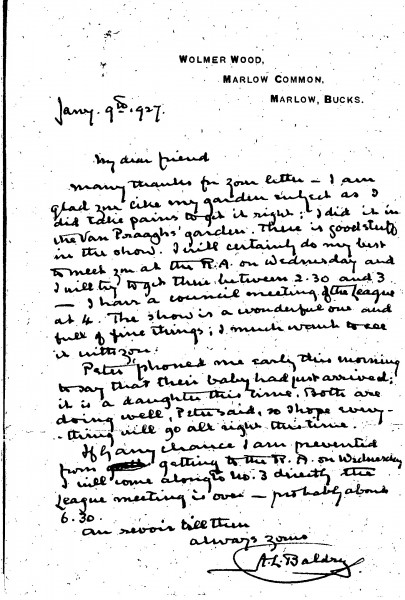 WOLMER WOOD,
MARLOW COMMON,
MARLOW, BUCKS.
Jany. 9th 1927.
My dear friend
Many thanks for your letter – I am
glad you like my garden subject as I
did take pains to get it right; I did it in
the Van Praaghs' garden. There is good stuff
in the show. I will certainly do my best
to meet you at the R.A. on Wednesday and
I will try to get there between 2.30 and 3
– I have a council meeting of the League
at 4. The show is a wonderful one and
full of fine things; I much want to see
it with you.
Peter 'phoned me early this morning
to say that their baby had just arrived;
it is a daughter this time. Both are
doing well, Peter said, so I hope every-
-thing will go all right this time.
If by any chance I am prevented
from getting to the R.A. on Wednesday
I will come along to No. 3 directly the
League meeting is over – probably about
6.30.
au revoir till then
always yours
A.L. Baldry